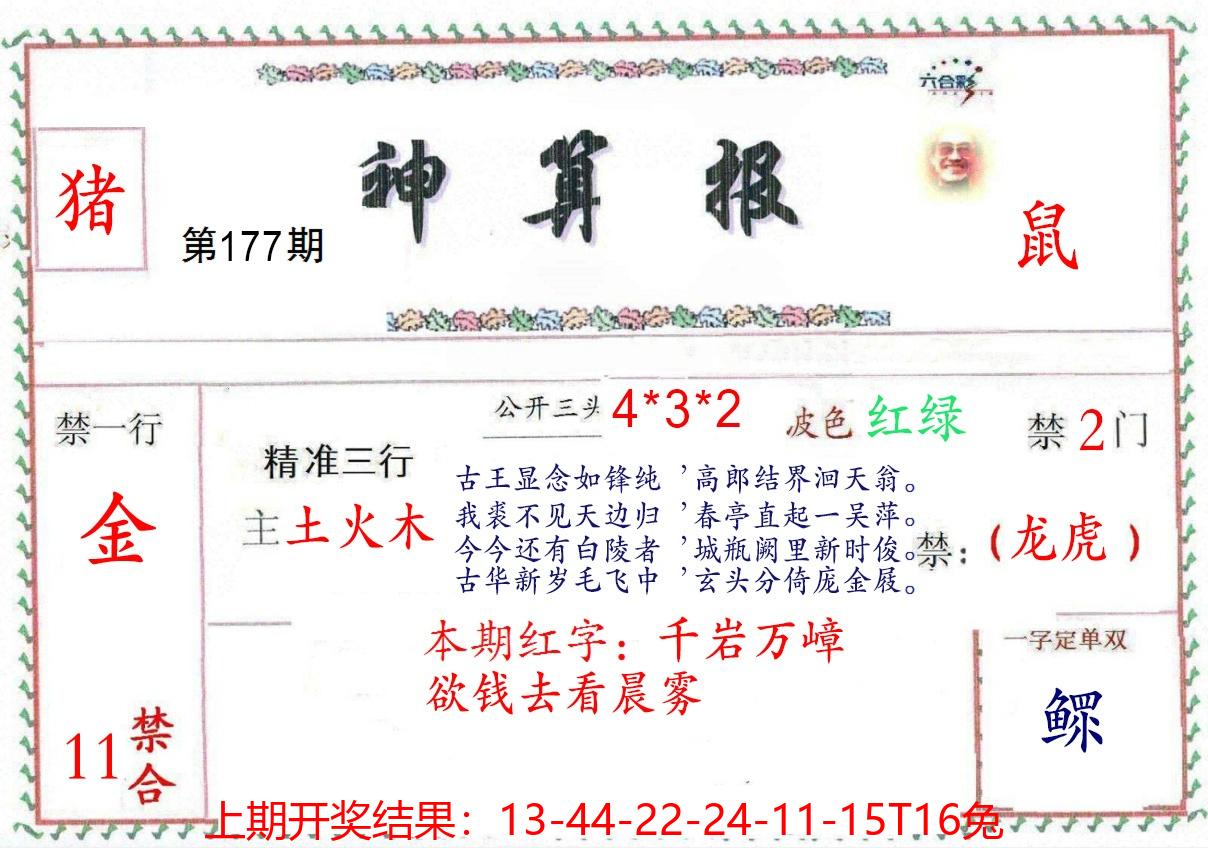 六合彩
神算报
猪
第177期
鼠
禁一行
金
11禁合
精准三行
主土火木
公开三头 4*3*2
波色 红绿
古王显念如锋纯，高郎结界洄天翁。
我裘不见天边归，春亭直起一吴萍。
今今还有白陵者，城瓶阙里新时俊。
古华新岁毛飞中，玄头分倚庞金屐。
禁2门
禁：（龙虎）
本期红字：千岩万嶂
欲钱去看晨雾
一字定单双
鳏
上期开奖结果：13-44-22-24-11-15T16兔